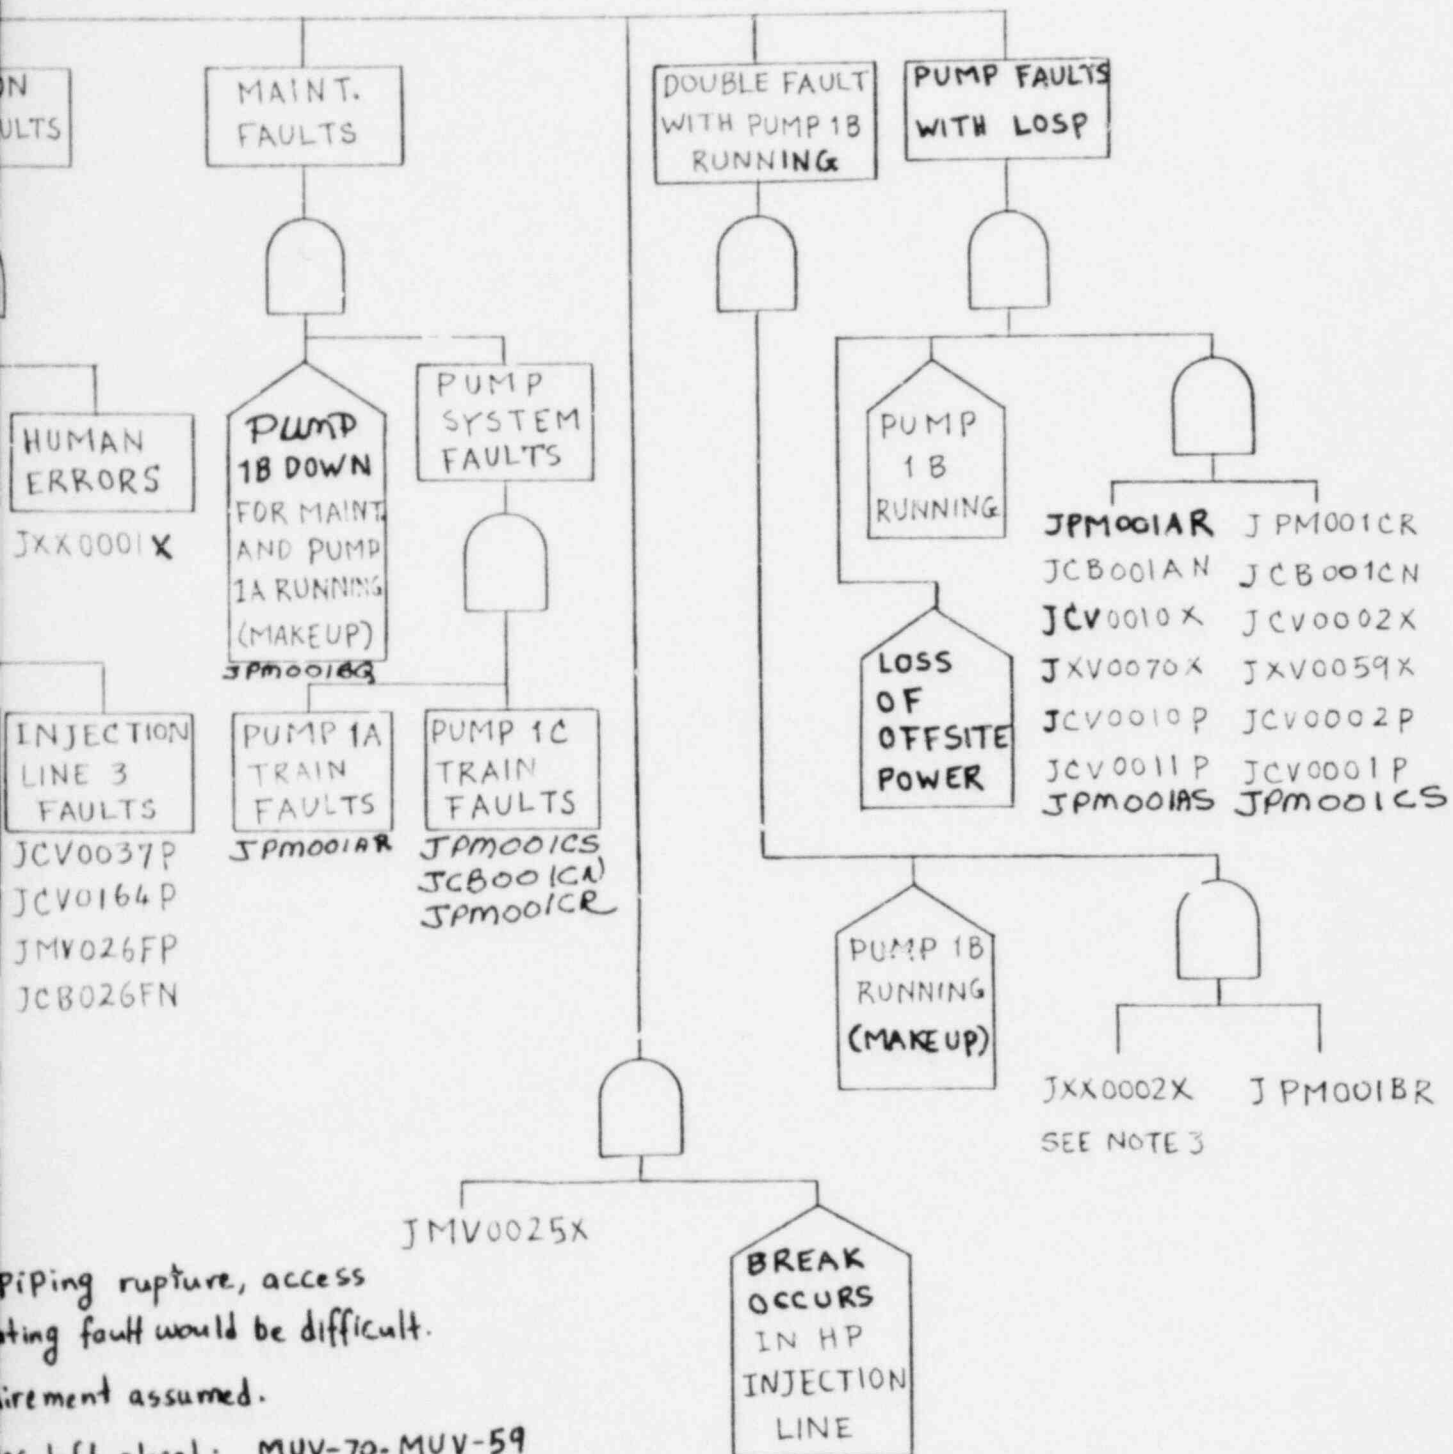 ON
ULTS
MAINT.
FAULTS
DOUBLE FAULT
WITH PUMP 1B
RUNNING
PUMP FAULTS
WITH LOSP
HUMAN
ERRORS
JXX0001X
PUMP
1B DOWN
FOR MAINT.
AND PUMP
1A RUNNING
(MAKEUP)
JPM001BQ
PUMP
SYSTEM
FAULTS
PUMP
1B
RUNNING
JPM001AR JPM001CR
JCB001AN JCB001CN
JCV0010X JCV0002X
JXV0070X JXV0059X
JCV0010P JCV0002P
JCV0011P JCV0001P
JPM001AS JPM001CS
LOSS
OF
OFFSITE
POWER
INJECTION
LINE 3
FAULTS
JCV0037P
JCV0164P
JMV026FP
JCB026FN
PUMP 1A
TRAIN
FAULTS
JPM001AR
PUMP 1C
TRAIN
FAULTS
JPM001CS
JCB001CN
JPM001CR
PUMP 1B
RUNNING
(MAKEUP)
JXX0002X JPM001BR
SEE NOTE 3
JMV0025X
BREAK
OCCURS
IN HP
INJECTION
LINE
Piping rupture, access
ting fault would be difficult.
irement assumed.
MUV-70, MUV-59